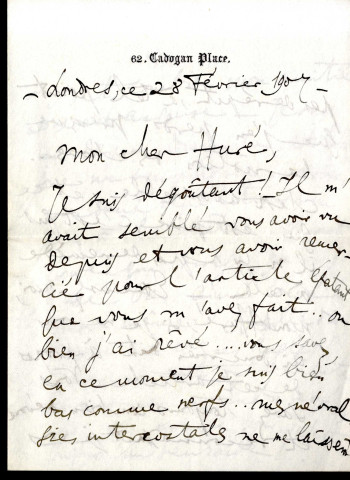 62. Cadogan Place.
- Londres, ce 28 Février 1907 -
Mon cher Huré,
Je suis dégoûtant ! Il m'
avait semblé vous avoir vu
depuis et vous avoir remer-
cié pour l'article épatant
que vous m'avez fait.. ou
bien j'ai rêvé .... vous savez
en ce moment je suis bien
bas comme nerfs.. mes néval
gies intercostales ne me laissent